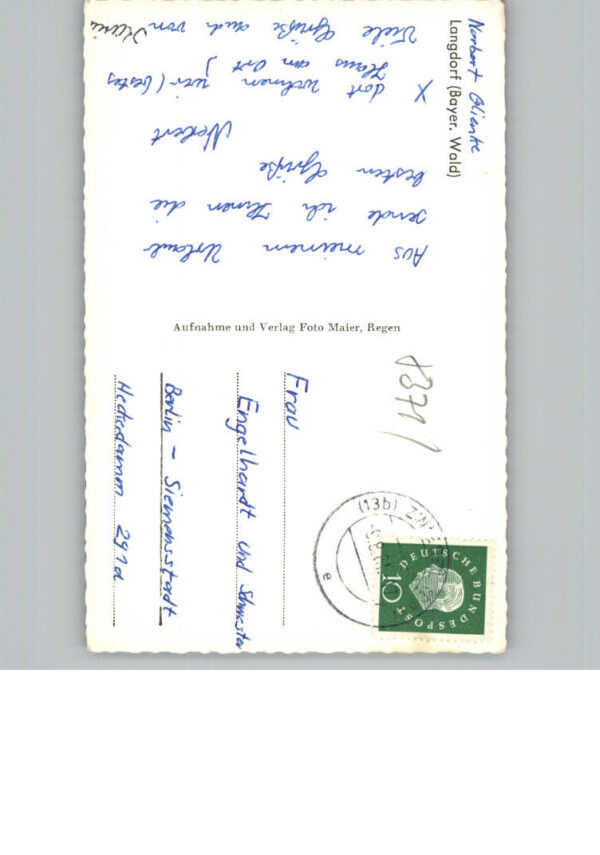 Norbert Glienke
Langdorf (Bayer. Wald)
Aus meinem Urlaub
sende ich Ihnen die
besten Grüße
Norbert
X dort wohnen wir (bestes
Haus am Ort)
Viele Grüße auch von
Aufnahme und Verlag Foto Maier, Regen
8371
(13b) ZWI
e
DEUTSCHE BUNDESPOST
10
Frau
Engelhardt und Schwester
Berlin - Siemensstadt
Heckerdamm 291a